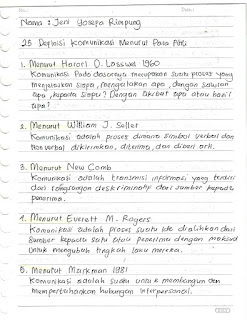 Nama : Jeni Yosefa Rimpung
25 Definisi Komunikasi Menurut Para Ahli
1. Menurut Harorl D. Lasswel 1960
Komunikasi Pada dasarnya merupakan suatu proses yang
menjelaskan siapa, mengatakan apa, dengan saluran
apa, kepada siapa? Dengan akibat apa atau hasil
apa?
2. Menurut William J. Seller
Komunikasi adalah proses dimana simbol verbal dan
nonverbal dikirimkan, diterima, dan diberi arti.
3. Menurut New Comb
Komunikasi adalah transmisi informasi yang terdiri
dari rangsangan deskriminatif dari sumber kepada
penerima.
4. Menurut Everett M. Rogers
Komunikasi adalah proses suatu ide dialihkan dari
sumber kepada satu atau penerima dengan maksud
untuk mengubah tingkah laku mereka.
5. Menurut Markman 1981
Komunikasi adalah suatu untuk membangun dan
mempertahankan hubungan interpersonal.